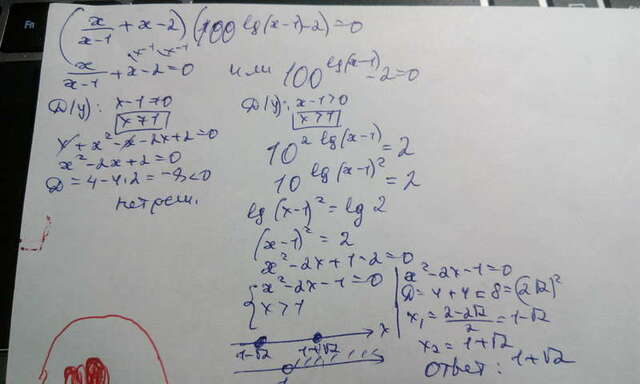 (x/(x-1) + x-2)(100^lg(x-1) -2)=0
x/(x-1) + x-2=0 или 100^lg(x-1) -2=0
D(y): x-1≠0
x≠1
x+x²-x-2x+2=0
x²-2x+2=0
D=4-4·2=-8<0
нет реш.
D(y): x-1>0
x>1
10^2lg(x-1)=2
10^lg(x-1)²=2
lg(x-1)²=lg2
(x-1)²=2
x²-2x+1-2=0
{x²-2x-1=0
x>1
1-√2 1+√2 x
1
x²-2x-1=0
D=4+4=8=(2√2)²
x₁=(2-2√2)/2=1-√2
x₂=1+√2
Ответ: 1+√2
Fn